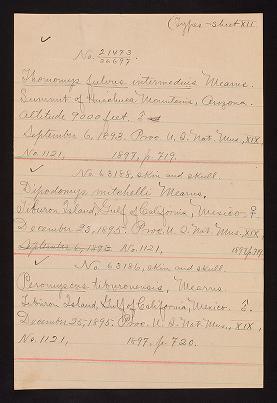 (Types - Sheet XII
✓
No. 21473/36697.
Thomomys fulvus intermedius Mearns.
Summit of Huachuca Mountains, Arizona.
Altitude 9000 feet. ♂
September 6, 1893. Proc. U. S. Nat. Mus., XIX,
No. 1121, 1897, p. 719.
✓ No. 63188, skin and skull.
Dipodomys mitchelli Mearns.
Tiburon Island, Gulf of California, Mexico. ♀.
December 23, 1895. Proc. U. S. Nat. Mus., XIX,
September 6, 1893 No. 1121, 1897, p. 719.
✓ No. 63186, skin and skull.
Peromyscus tiburonensis, Mearns.
Tiburon Island, Gulf of California, Mexico. ♂.
December 25, 1895. Proc. U. S. Nat. Mus., XIX,
No. 1121, 1897, p. 720.